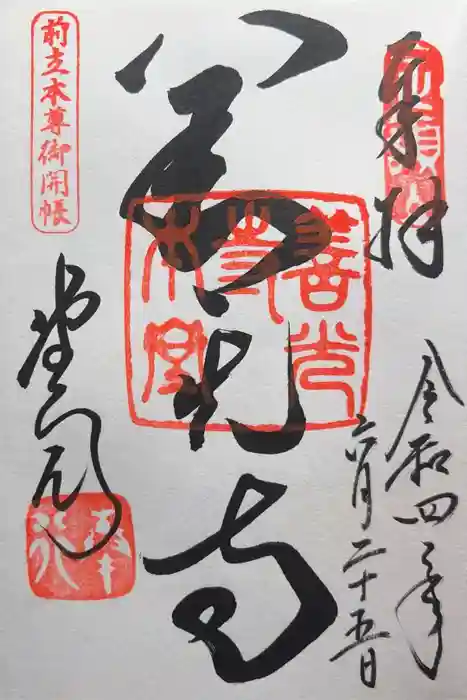 奉拝
令和四年
六月二十五日
善光寺
善光
寺
本堂
前立本尊御開帳
奉行